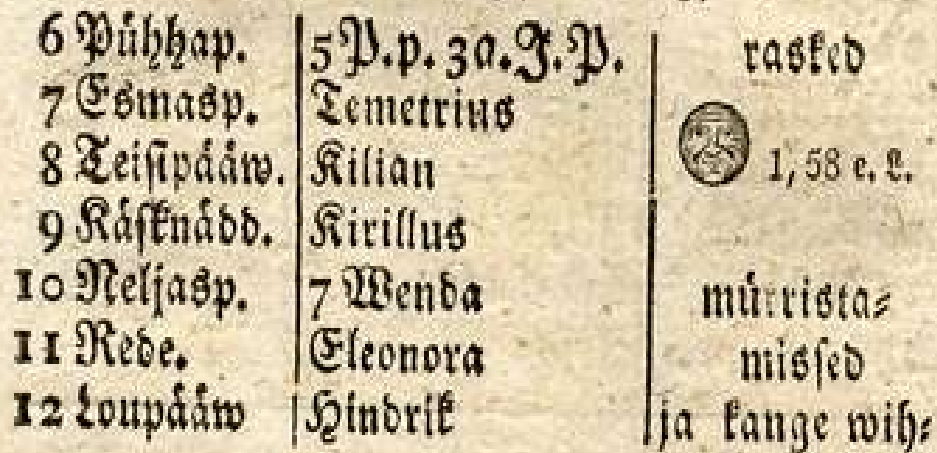 6 Pühhap. 5 P.p. 3a.J.P. rasked
7 Esmasp. Temetrius
8 Teisipääw. Kilian 1,58 e. L.
9 Käsknädd. Kirillus
10 Neljasp. 7 Wenda mürrista⸗
11 Rede. Eleonora missed
12 Loupääw Hindrik ja kange wih⸗